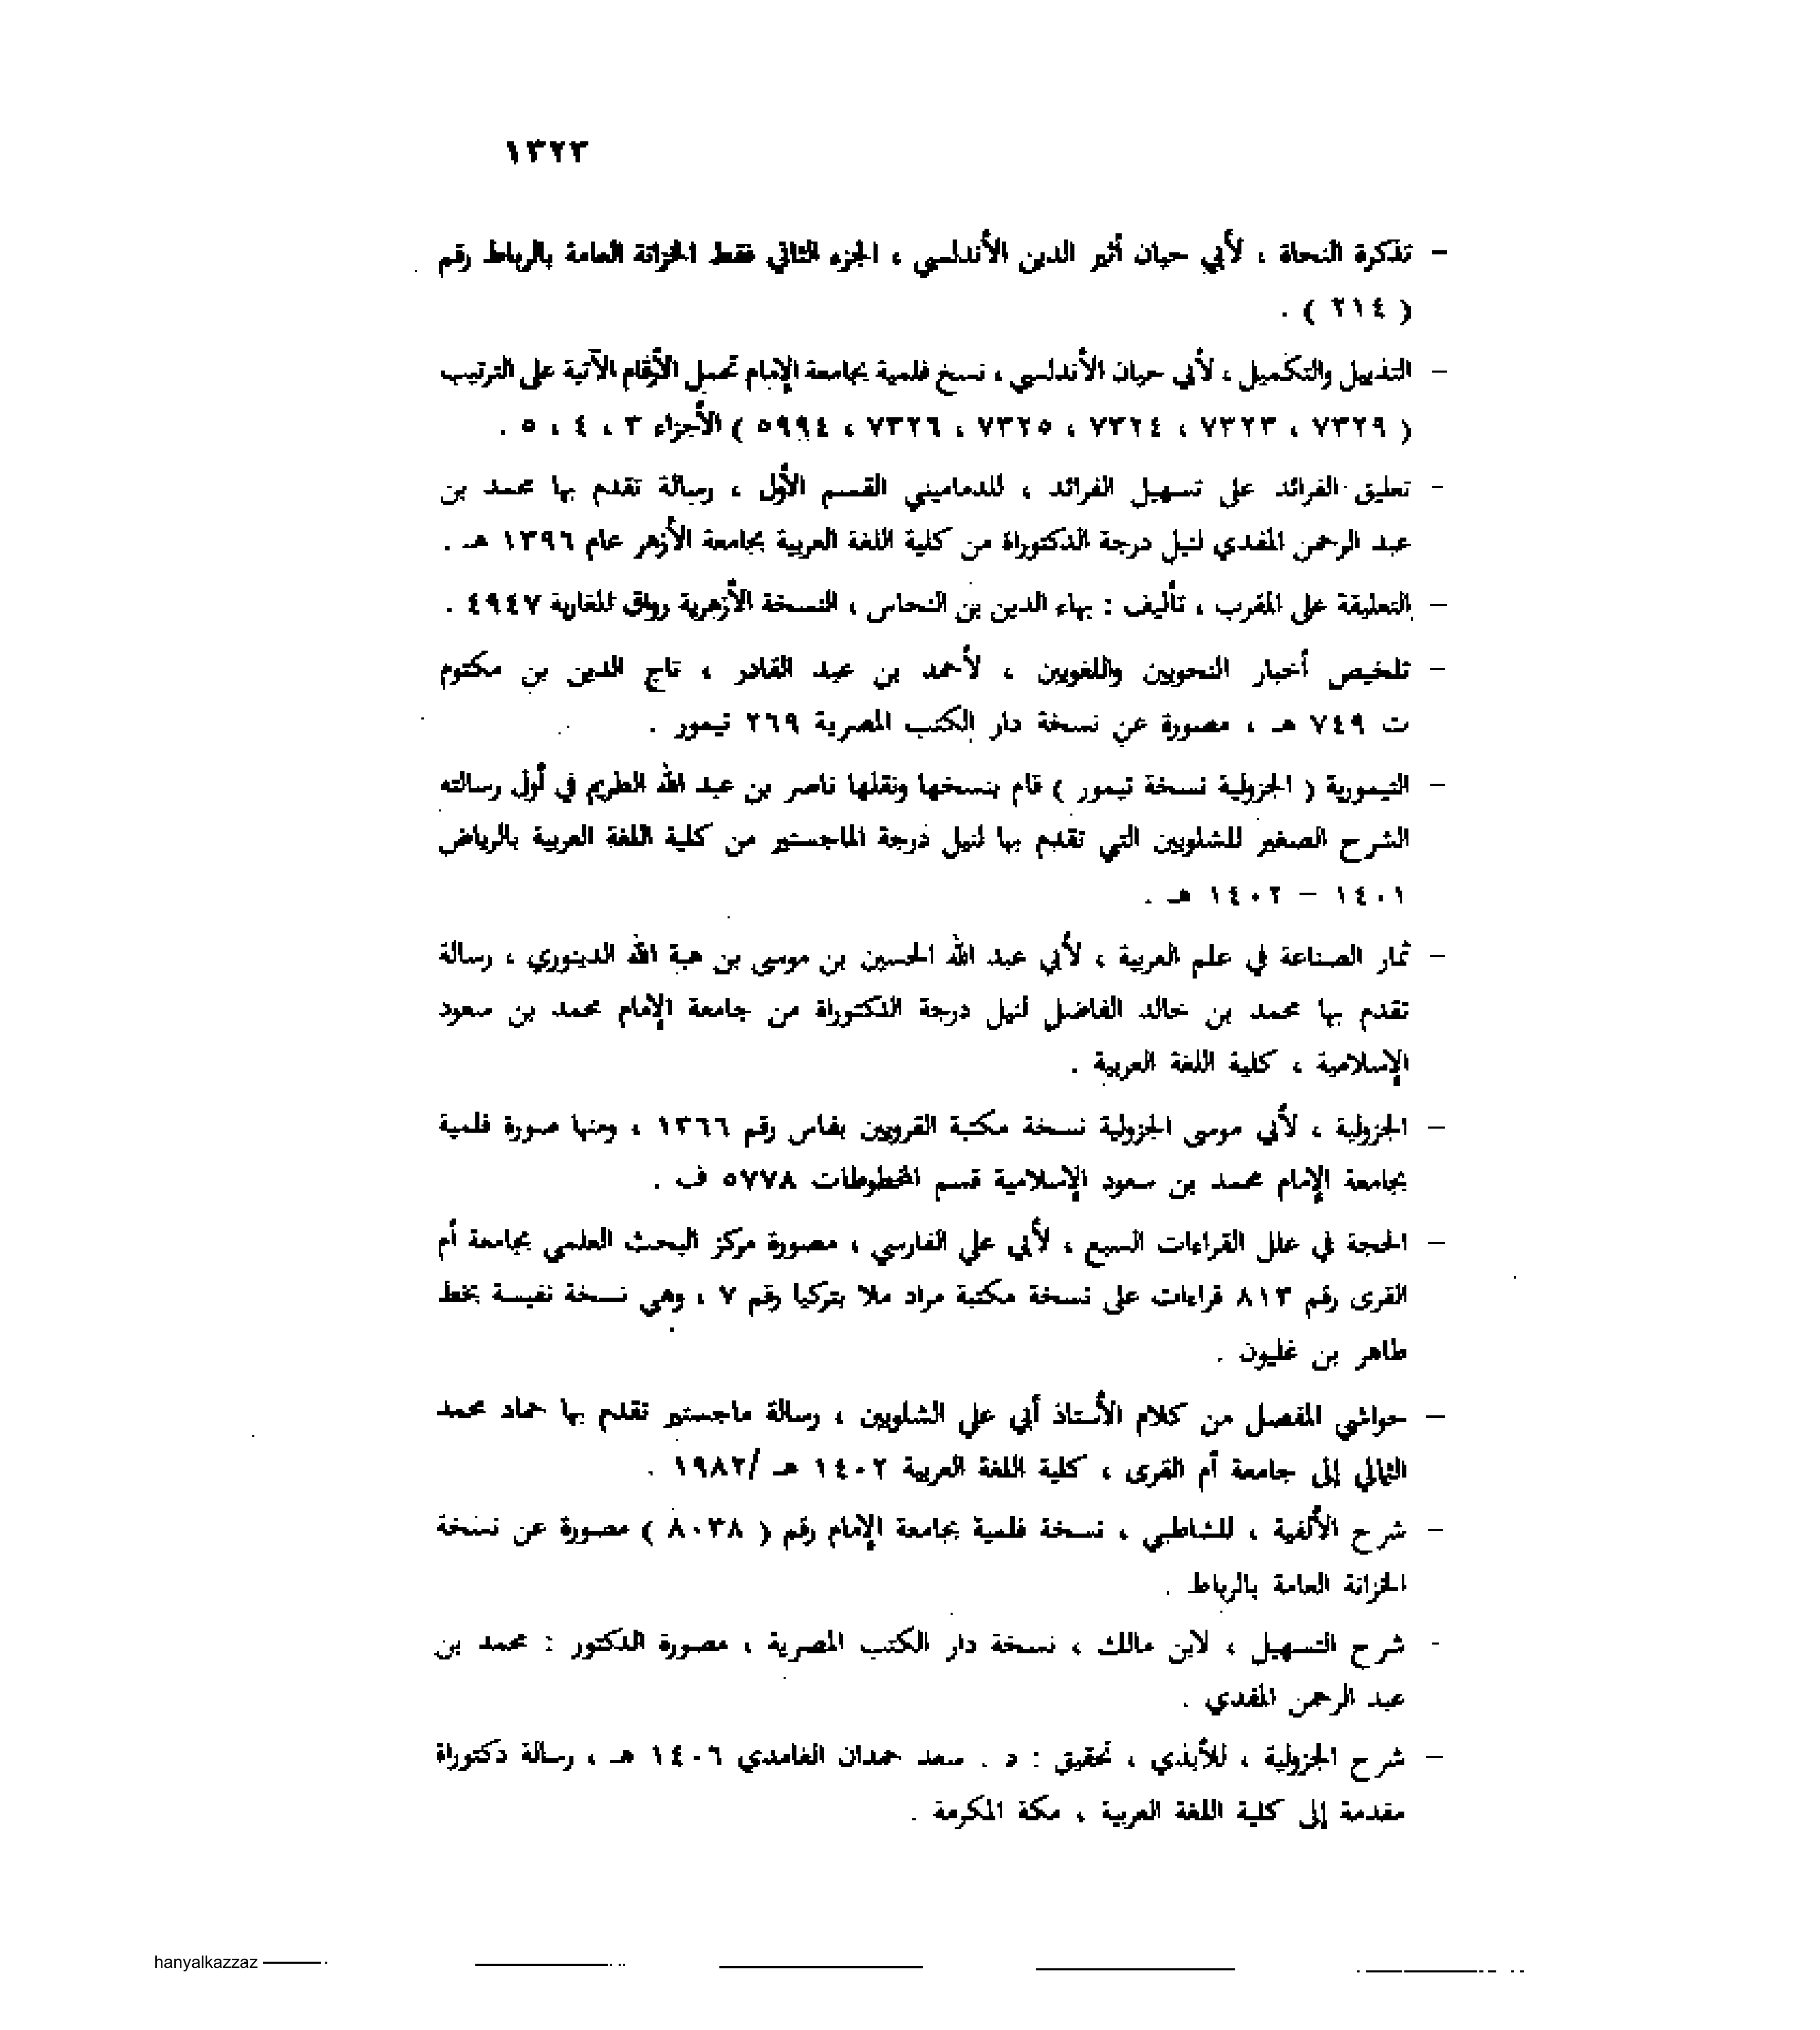 ١٣٢٣
– تذكرة النحاة ، لأبي حيان أثير الدين الأندلسي ، الجزء الثاني فقط الخزانة العامة بالرباط رقم
( ٢١٤ ) .
– التذييل والتكميل ، لأبي حيان الأندلسي ، نسخ فلمية بجامعة الإمام تحمل الأرقام الآتية على الترتيب
( ٧٣٢٩ ، ٧٣٢٣ ، ٧٣٢٤ ، ٧٣٢٥ ، ٧٣٢٦ ، ٥٩٩٤ ) الأجزاء ٣ ، ٤ ، ٥ .
- تعليق الفرائد على تسهيل الفرائد ، للدماميني القسم الأول ، رسالة تقدم بها محمد بن
عبد الرحمن المفدي لنيل درجة الدكتوراة من كلية اللغة العربية بجامعة الأزهر عام ١٣٩٦ هـ .
– التعليقة على المقرب ، تأليف : بهاء الدين بن النحاس ، النسخة الأزهرية رواق المغاربة ٤٩٤٧ .
– تلخيص أخبار النحويين واللغويين ، لأحمد بن عبد القادر ، تاج الدين بن مكتوم
ت ٧٤٩ هـ ، مصورة عن نسخة دار الكتب المصرية ٢٦٩ تيمور .
– التيمورية ( الجزولية نسخة تيمور ) قام بنسخها ونقلها ناصر بن عبد الله الطريم في أول رسالته
الشرح الصغير للشلوبين التي تقدم بها لنيل درجة الماجستير من كلية اللغة العربية بالرياض
١٤٠١ – ١٤٠٢ هـ .
– ثمار الصناعة في علم العربية ، لأبي عبد الله الحسين بن موسى بن هبة الله الدينوري ، رسالة
تقدم بها محمد بن خالد الفاضل لنيل درجة الدكتوراة من جامعة الإمام محمد بن سعود
الإسلامية ، كلية اللغة العربية .
– الجزولية ، لأبي موسى الجزولية نسخة مكتبة القرويين بفاس رقم ١٣٦٦ ، ومنها صورة فلمية
بجامعة الإمام محمد بن سعود الإسلامية قسم المخطوطات ٥٧٧٨ ف .
– الحجة في علل القراءات السبع ، لأبي علي الفارسي ، مصورة مركز البحث العلمي بجامعة أم
القرى رقم ٨١٣ قراءات على نسخة مكتبة مراد ملا بتركيا رقم ٧ ، وهي نسخة نفيسة بخط
طاهر بن غلبون .
– حواشي المفصل من كلام الأستاذ أبي علي الشلوبين ، رسالة ماجستير تقدم بها حماد محمد
الثمالي إلى جامعة أم القرى ، كلية اللغة العربية ١٤٠٢ هـ /١٩٨٢ .
– شرح الألفية ، للشاطبي ، نسخة فلمية بجامعة الإمام رقم ( ٨٠٣٨ ) مصورة عن نسخة
الخزانة العامة بالرباط .
- شرح التسهيل ، لابن مالك ، نسخة دار الكتب المصرية ، مصورة الدكتور : محمد بن
عبد الرحمن المفدي .
– شرح الجزولية ، للأبذي ، تحقيق : د . سعد حمدان الغامدي ١٤٠٦ هـ ، رسالة دكتوراة
مقدمة إلى كلية اللغة العربية ، مكة المكرمة .
hanyalkazzaz